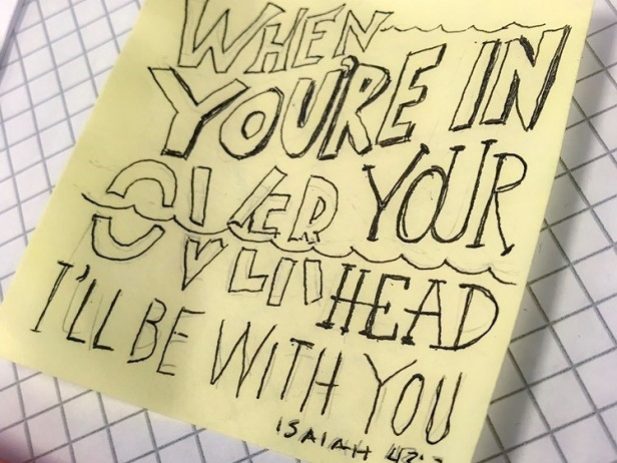 WHEN
YOU'RE IN
OVER YOUR
HEAD
I'LL BE WITH YOU
ISAIAH